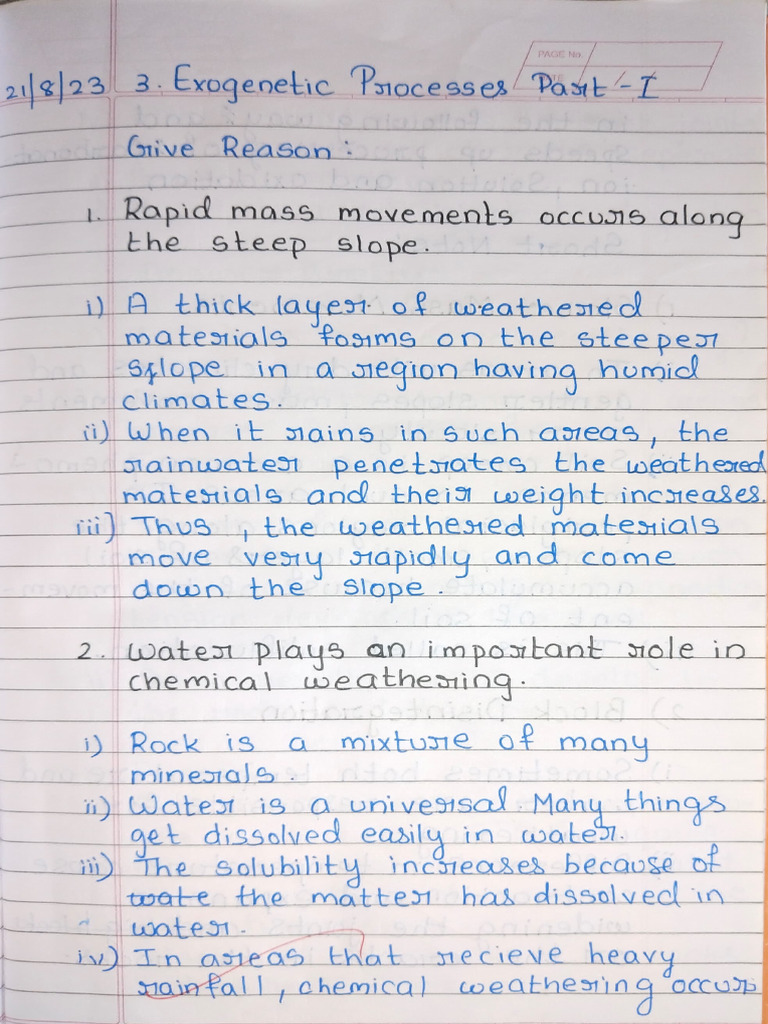 PAGE No.
21/8/23 3. Exogenetic Processes Part-I
Give Reason:
1. Rapid mass movements occurs along
the steep slope.
i) A thick layer of weathered
materials forms on the steeper
slope in a region having humid
climates.
ii) When it rains in such areas, the
rainwater penetrates the weathered
materials and their weight increases.
iii) Thus, the weathered materials
move very rapidly and come
down the slope.
2. Water plays an important role in
chemical weathering.
i) Rock is a mixture of many
minerals.
ii) Water is a universal. Many things
get dissolved easily in water.
iii) The solubility increases because of
wate the matter has dissolved in
water.
iv) In areas that recieve heavy
rainfall, chemical weathering occurs